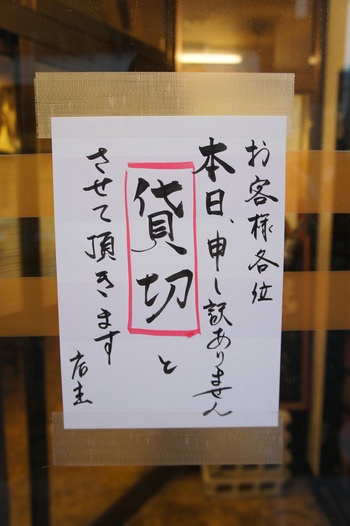 お客様各位
本日、申し訳ありません
貸切と
させて頂きます
店主